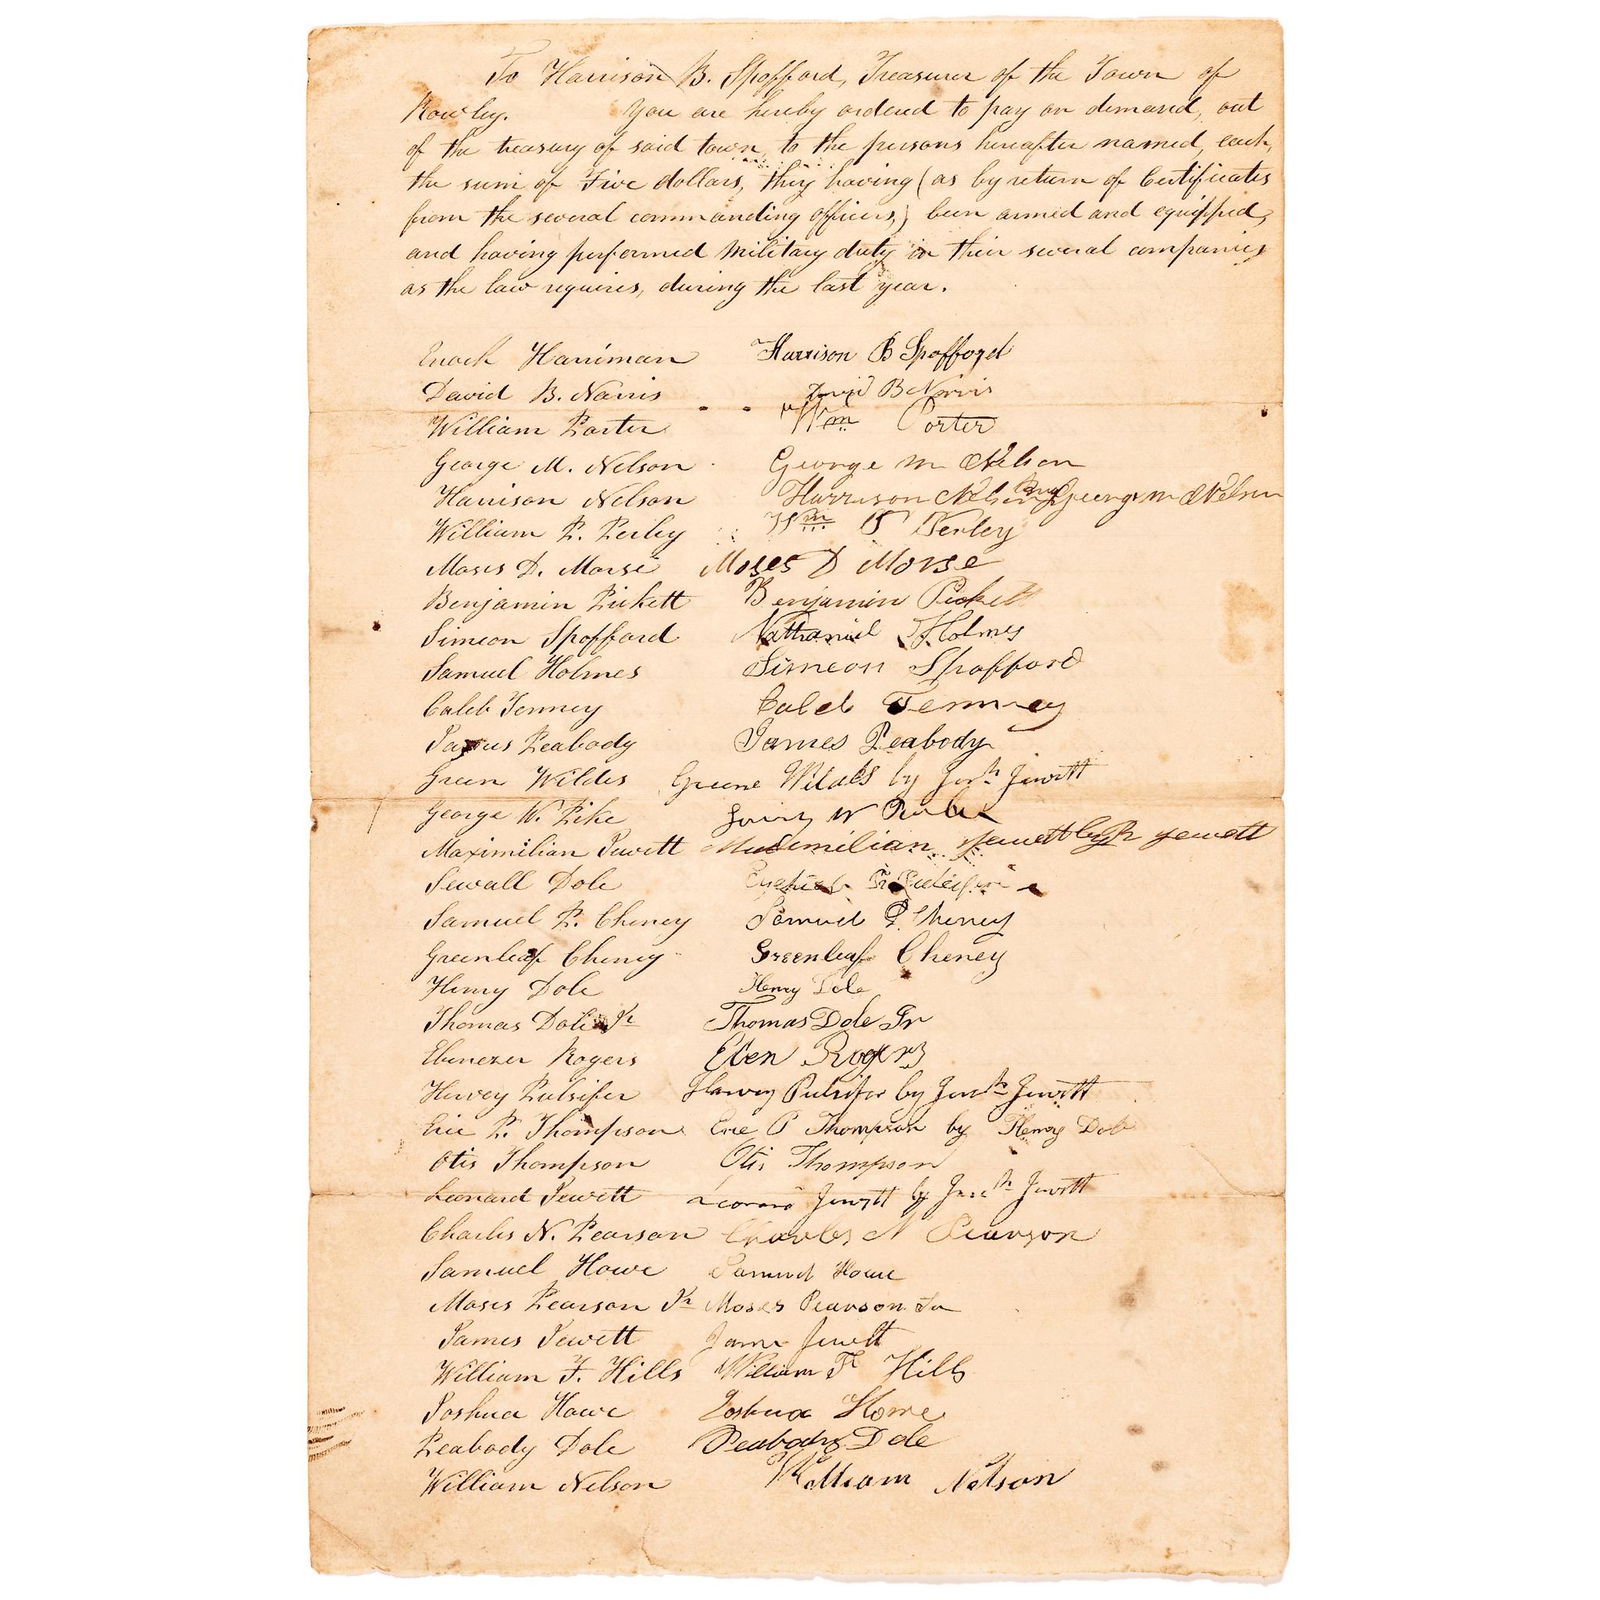 To Harrison B. Spofford, Treasurer of the Town of
Rowley. You are hereby ordered to pay on demand, out
of the treasury of said town, to the persons hereafter named, each,
the sum of Five dollars, they having (as by return of Certificates
from the several commanding officers,) been armed and equipped,
and having performed Military duty in their several companies
as the law requires, during the last year.
Enoch Harriman Harrison B Spofford
David B. Norris David B Norris
William Porter Wm Porter
George M. Nelson George M Nelson
Harrison Nelson Harrison Nelson George M Nelson
William P. Perley Wm P Perley
Moses D. Morse Moses D Morse
Benjamin Pickett Benjamin Pickett
Simeon Spofford Nathaniel Holmes
Samuel Holmes Simeon Spofford
Caleb Tenney Caleb Tenney
James Peabody James Peabody
Green Wildes Greene Wildes by Josh Jewett
George W. Pike W
Maximilian Jewett Maximilian Jewett by Jewett
Sewall Dole
Samuel P. Cheney Samuel P. Cheney
Greenleaf Cheney Greenleaf Cheney
Henry Dole Henry Dole
Thomas Dole Jr Thomas Dole Jr
Ebenezer Rogers Eben Rogers
Hervey Pulsifer Harvey Pulsifer by Josh Jewett
Eric P. Thompson Eric P Thompson by Henry Dole
Otis Thompson Otis Thompson
Leonard Jewett Leonard Jewett by Josh Jewett
Charles N. Pearson Charles N Pearson
Samuel Howe Samuel Howe
Moses Pearson Jr Moses Pearson Jr
James Jewett James Jewett
William F. Hills William F Hills
Joshua Howe Joshua Howe
Peabody Dole Peabody Dole
William Nelson William Nelson